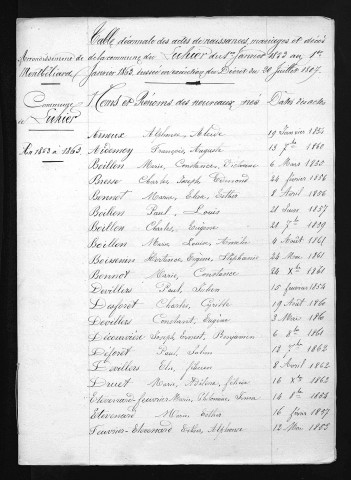 Table décennale des actes de naissances, mariages et décès
de la commune de Luhier du 1er Janvier 1853 au 1er
Janvier 1863, dressée en exécution du Décret du 20 Juillet 1807.
Arrondissement de
Montbéliard
Commune
de Luhier
An 1853 à 1863
Noms et Prénoms des nouveaux nés Dates des actes
Arnoux 19 Janvier 1854
François Auguste 15 7bre 1860
Boillon Marie, Constance, 6 Mars 1850
Bresse Charles Joseph Edmond 24 février 1856
Bonnet Marie, Elisa, Esther 8 Avril 1856
Boillon Paul, Louis 21 1857
Boillon Charles, Eugène 21 7bre 1859
Boillon Marie, Louise, Amélie 4 Août 1861
Boissenin Hortense, Eugénie, Stéphanie 24 Mai 1861
Bonnot Marie, Constance 24 Xbre 1861
Devillers Paul, 15 février 1854
Charles, Cyrille 19 Août 1860
Devillers Constant, Eugène 3 Mai 1861
Joseph, Ernest, Benjamin 6 Xbre 1861
Deforet Paul, 1862
Devillers 8 Avril 1862
Druet Marie, félicie 16 Xbre 1862
Etevenard-feuvrier Marie, Philomène, 14 8bre 1854
Etevenard Marie, Esther 16 févr 1857
Feuvrier-Etevenard Esther, Alphonse 12 Mai 1853